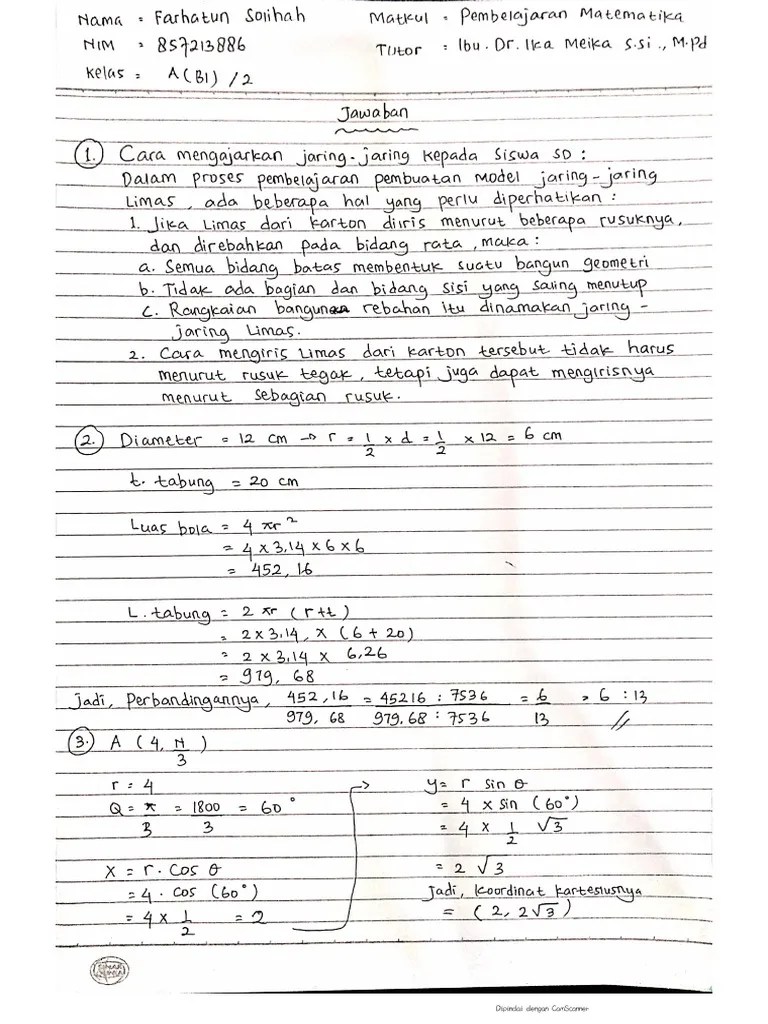 Nama : Farhatun Solihah Matkul : Pembelajaran Matematika
NIM : 857213886 Tutor : Ibu. Dr. Ika Meika S.si., M.Pd
Kelas : A(BI) / 2
Jawaban
1. Cara mengajarkan jaring-jaring kepada Siswa SD :
Dalam proses pembelajaran pembuatan Model jaring-jaring
Limas, ada beberapa hal yang perlu diperhatikan :
1. Jika Limas dari karton diiris menurut beberapa rusuknya,
dan direbahkan pada bidang rata, maka :
a. Semua bidang batas membentuk suatu bangun geometri
b. Tidak ada bagian dan bidang sisi yang saling menutup
c. Rangkaian bangunan rebahan itu dinamakan jaring-
jaring Limas.
2. Cara mengiris Limas dari karton tersebut tidak harus
menurut rusuk tegak, tetapi juga dapat mengirisnya
menurut sebagian rusuk.
2. Diameter = 12 cm → r = 1/2 x d = 1/2 x 12 = 6 cm
t. tabung = 20 cm
Luas bola = 4 πr²
= 4 x 3,14 x 6 x 6
= 452, 16
L. tabung = 2 πr (r+t)
= 2 x 3,14, x (6 + 20)
= 2 x 3,14 x 6,26
= 979, 68
Jadi, Perbandingannya, 452,16/979,68 = 45216 : 7536/979.68 : 7536 = 6/13 = 6 : 13 //
3. A (4, π/3)
r = 4
Q = π/3 = 1800/3 = 60°
X = r . Cos θ
= 4 . cos (60°)
= 4 x 1/2 = 2
y = r sin θ
= 4 x sin (60°)
= 4 x 1/2 √3
= 2 √3
Jadi, Koordinat kartesiusnya
= (2, 2√3)
Dipindai dengan CamScanner